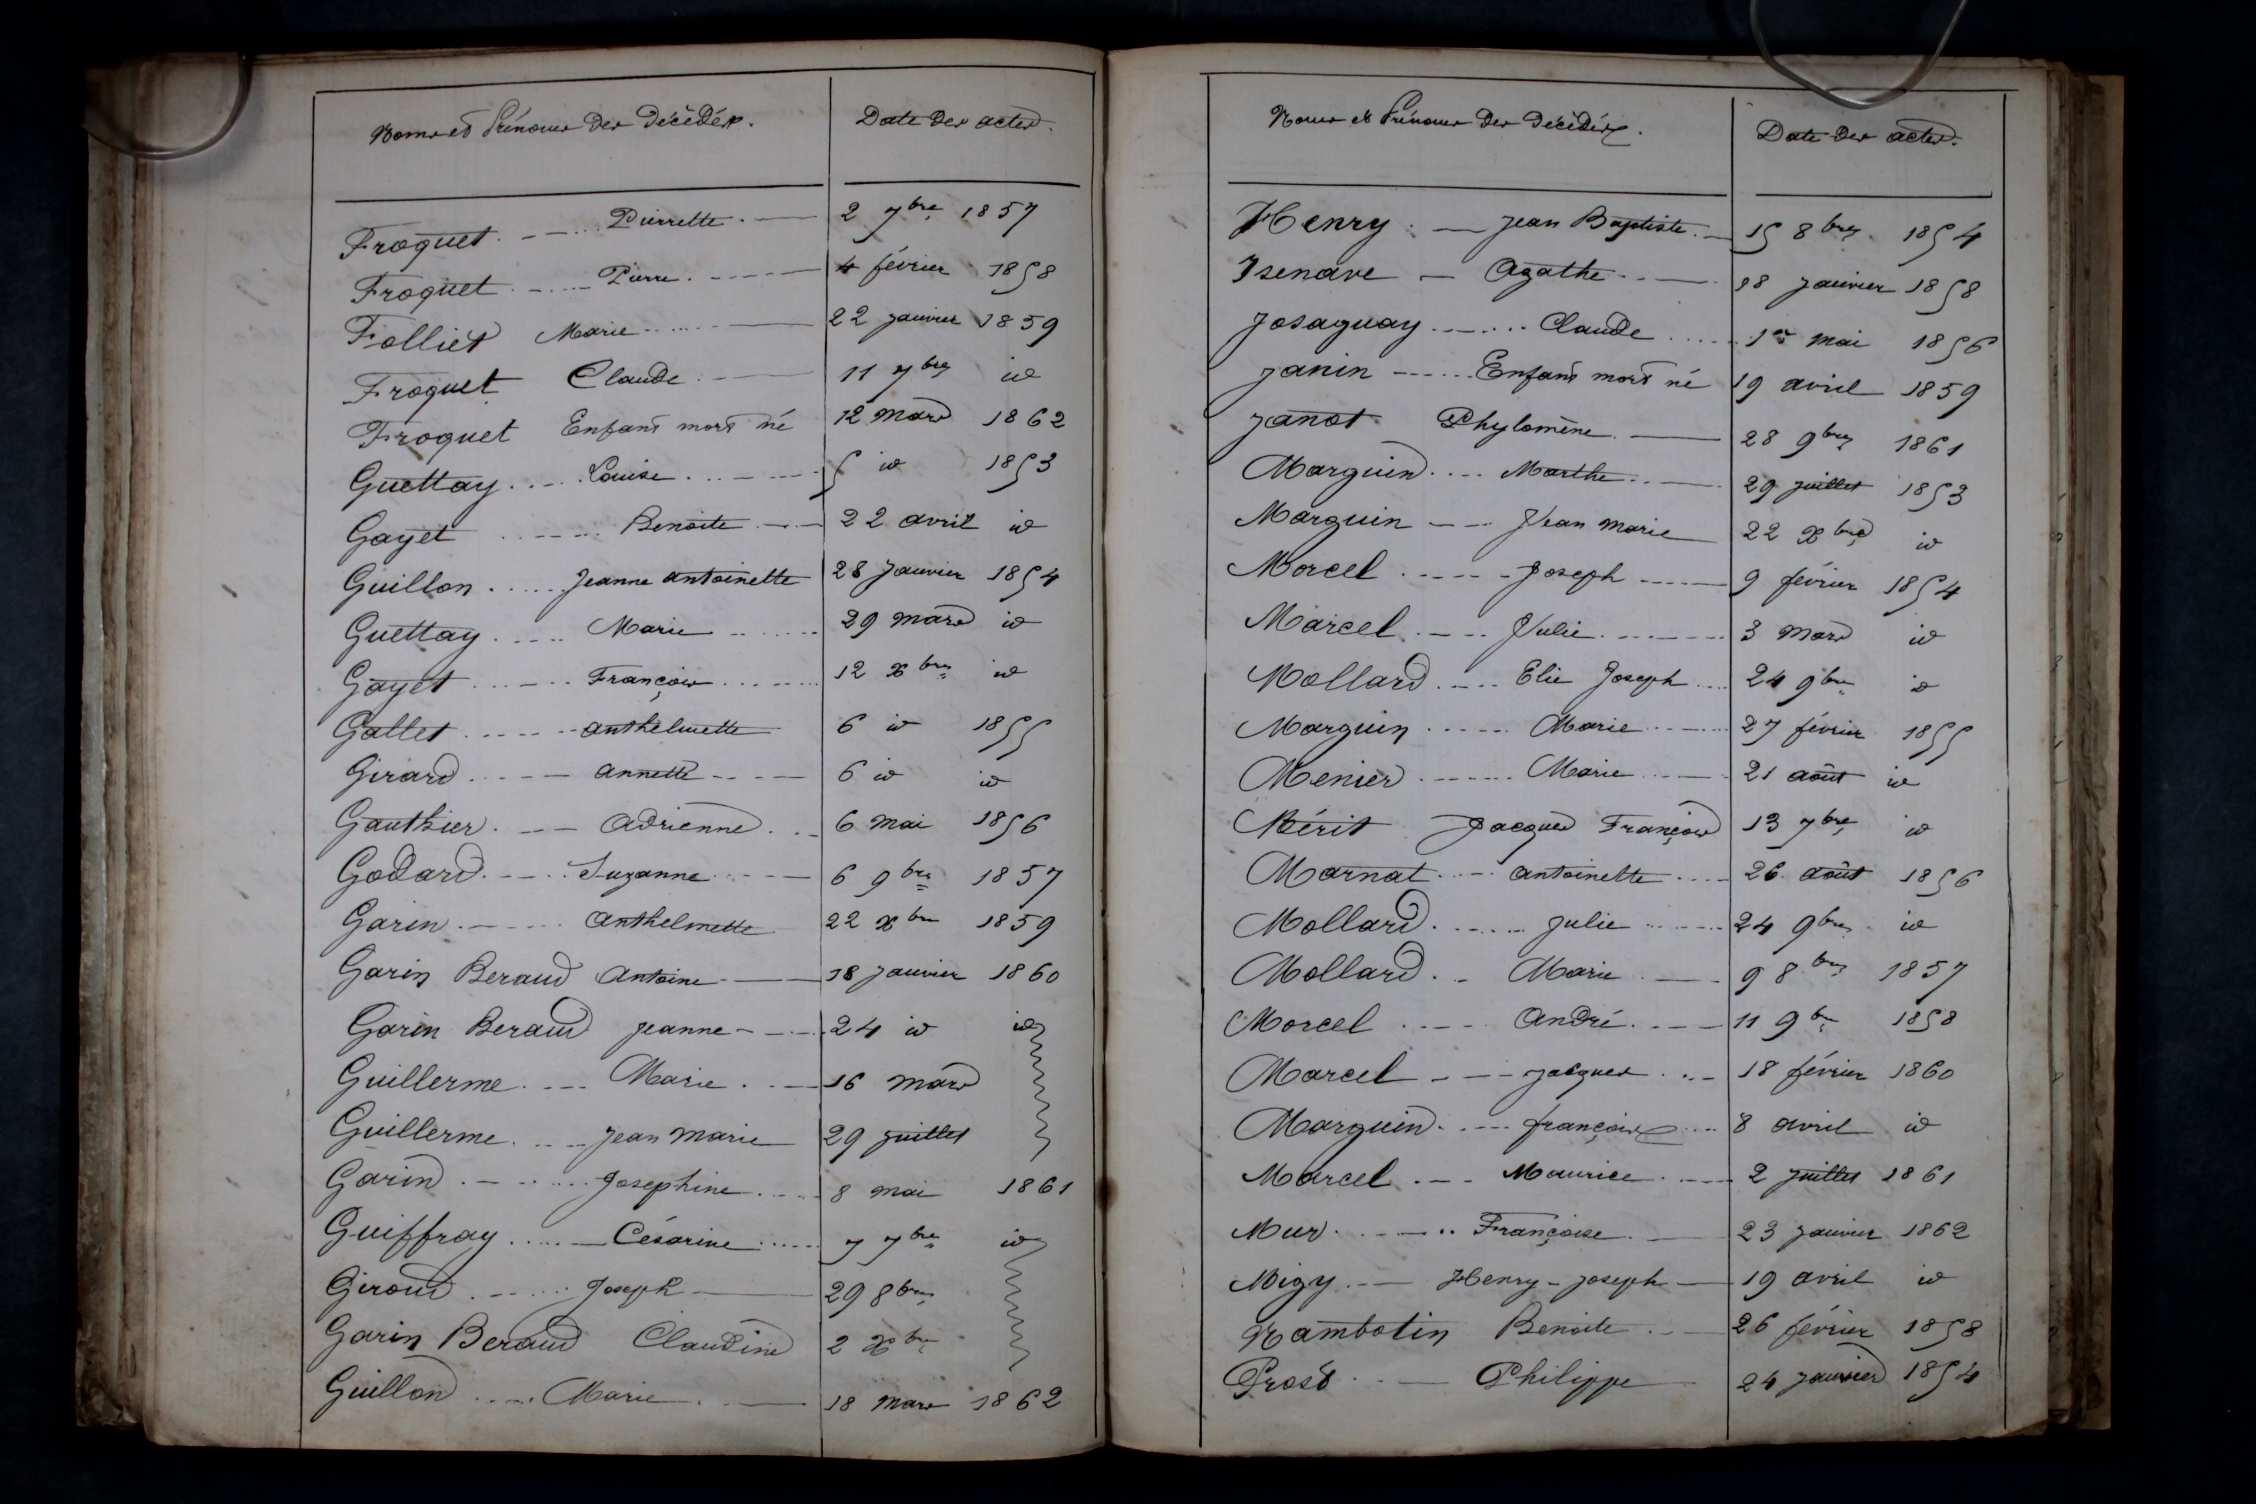 Noms et Prénoms des Décédés. Date des actes.
Froquet Pierrette 2 7bre 1857
Froquet Pierre 4 février 1858
Folliet Marie 22 janvier 1859
Froquet Claude 11 7bre id
Froquet Enfant mort né 12 mars 1862
Guettay Louise 5 id 1853
Gayet Benoite 22 avril id
Guillon Jeanne antoinette 28 janvier 1854
Guettay Marie 29 mars id
Gayet François 12 xbre id
Gallet anthelmette 6 id 1855
Girard annette 6 id id
Gauthier adrienne 6 mai 1856
Godard Suzanne 6 9bre 1857
Garin anthelmette 22 xbre 1859
Garin Beraud antoine 18 janvier 1860
Garin Beraud jeanne 24 id id
Guillerme Marie 16 mars
Guillerme jean marie 29 juillet
Garin Josephine 8 mai 1861
Guiffray Césarine 7 7bre id
Giroud Joseph 29 8bre
Garin Beraud Claudine 2 xbre
Guillon Marie 18 mars 1862
Noms et Prénoms des Décédés. Date des actes.
Henry Jean Baptiste 15 8bre 1854
Isenave Agathe 18 janvier 1858
Josaguay Claude 1er mai 1856
Janin Enfant mort né 19 avril 1859
Janot Phylomène 28 9bre 1861
Marguin Marthe 29 juillet 1853
Marguin Jean marie 22 xbre id
Morcel Joseph 9 février 1854
Marcel Julie 3 mars id
Mollard Elie Joseph 24 9bre id
Marguin Marie 27 février 1855
Menier Marie 21 août id
Mérit Jacques François 13 7bre id
Marnat antoinette 26 août 1856
Mollard julie 24 9bre id
Mollard Marie 9 8bre 1857
Morcel André 11 9bre 1858
Marcel jacques 18 février 1860
Marguin françois 8 avril id
Marcel Maurice 2 juillet 1861
Mur Françoise 23 janvier 1862
Migy Henry-joseph 19 avril id
Nambotin Benoite 26 février 1858
Prost Philippe 24 janvier 1854